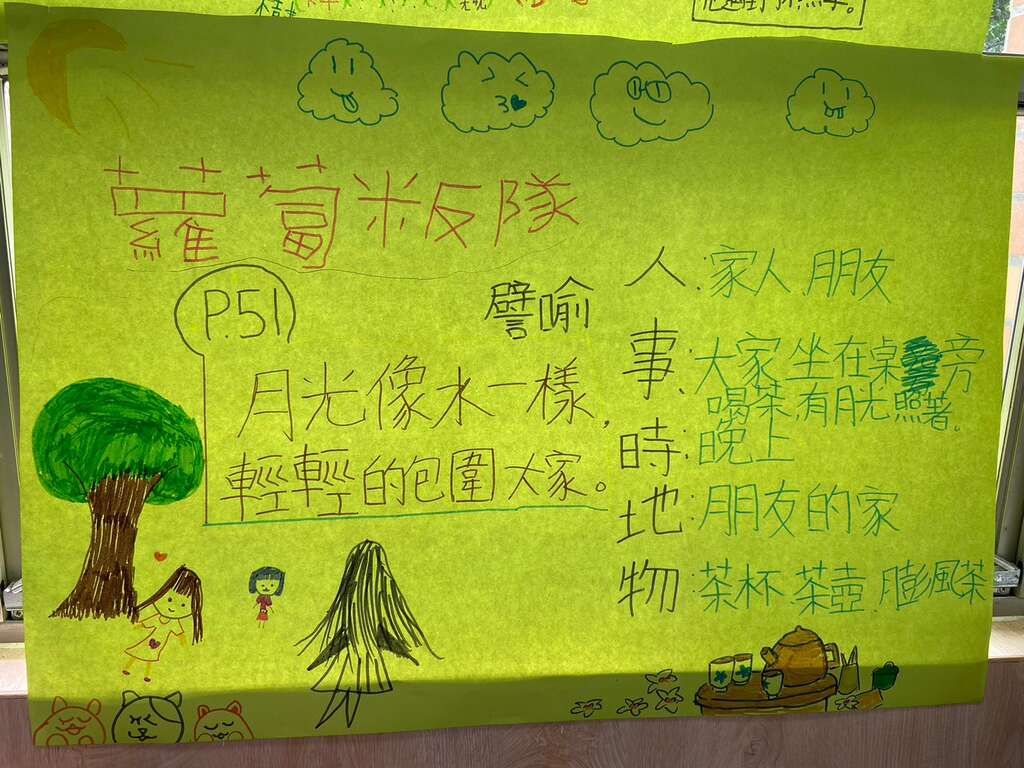 他遇到
蘿蔔粄隊
P.51
譬喻
月光像水一樣，
輕輕的包圍大家。
人：家人、朋友
事：大家坐在桌旁
喝茶，有月光照著。
時：晚上
地：朋友的家
物：茶杯、茶壺、膨風茶